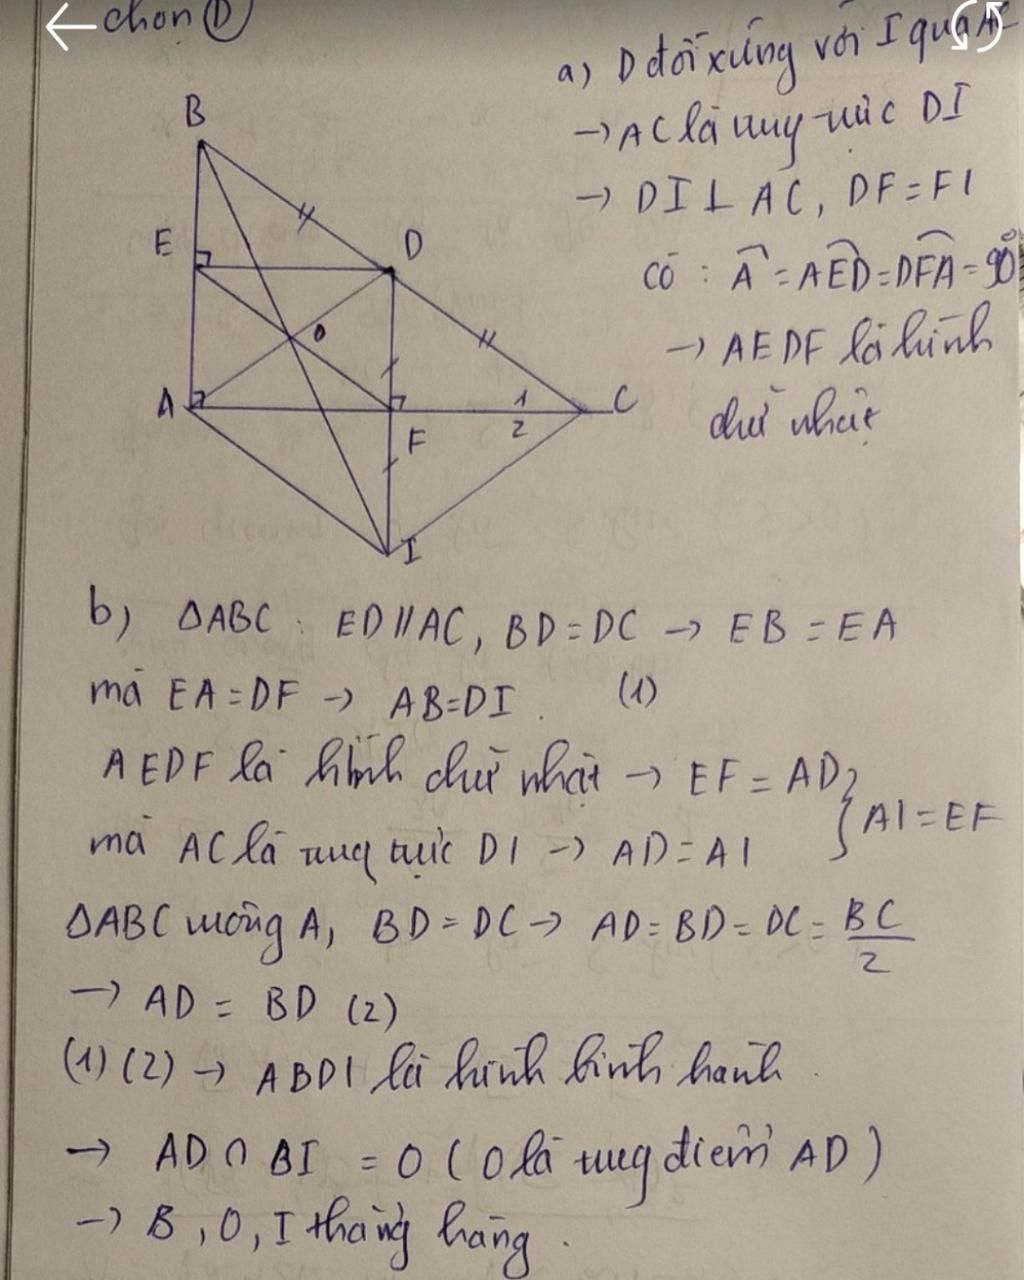 chọn D
a) D đối xứng với I qua AC
→ AC là trung trực DI
→ DI ⊥ AC, DF = FI
có : Â = AÊD = DF̂A = 90°
→ AEDF là hình
chữ nhật
B
E
D
O
A
1
2
C
F
I
b) ΔABC : ED // AC, BD = DC → EB = EA
mà EA = DF → AB = DI . (1)
AEDF là hình chữ nhật → EF = AD
mà AC là trung trực DI → AD = AI } AI = EF
ΔABC vuông A, BD = DC → AD = BD = DC = BC/2
→ AD = BD (2)
(1) (2) → ABDI là hình bình hành .
→ AD ∩ BI = O ( O là trung điểm AD )
→ B, O, I thẳng hàng .